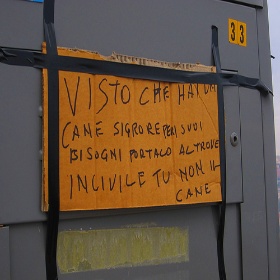 33
VISTO CHE HAI UN
CANE SIGNORE PER I SUOI
BISOGNI PORTALO ALTROVE
INCIVILE TU NON IL
CANE